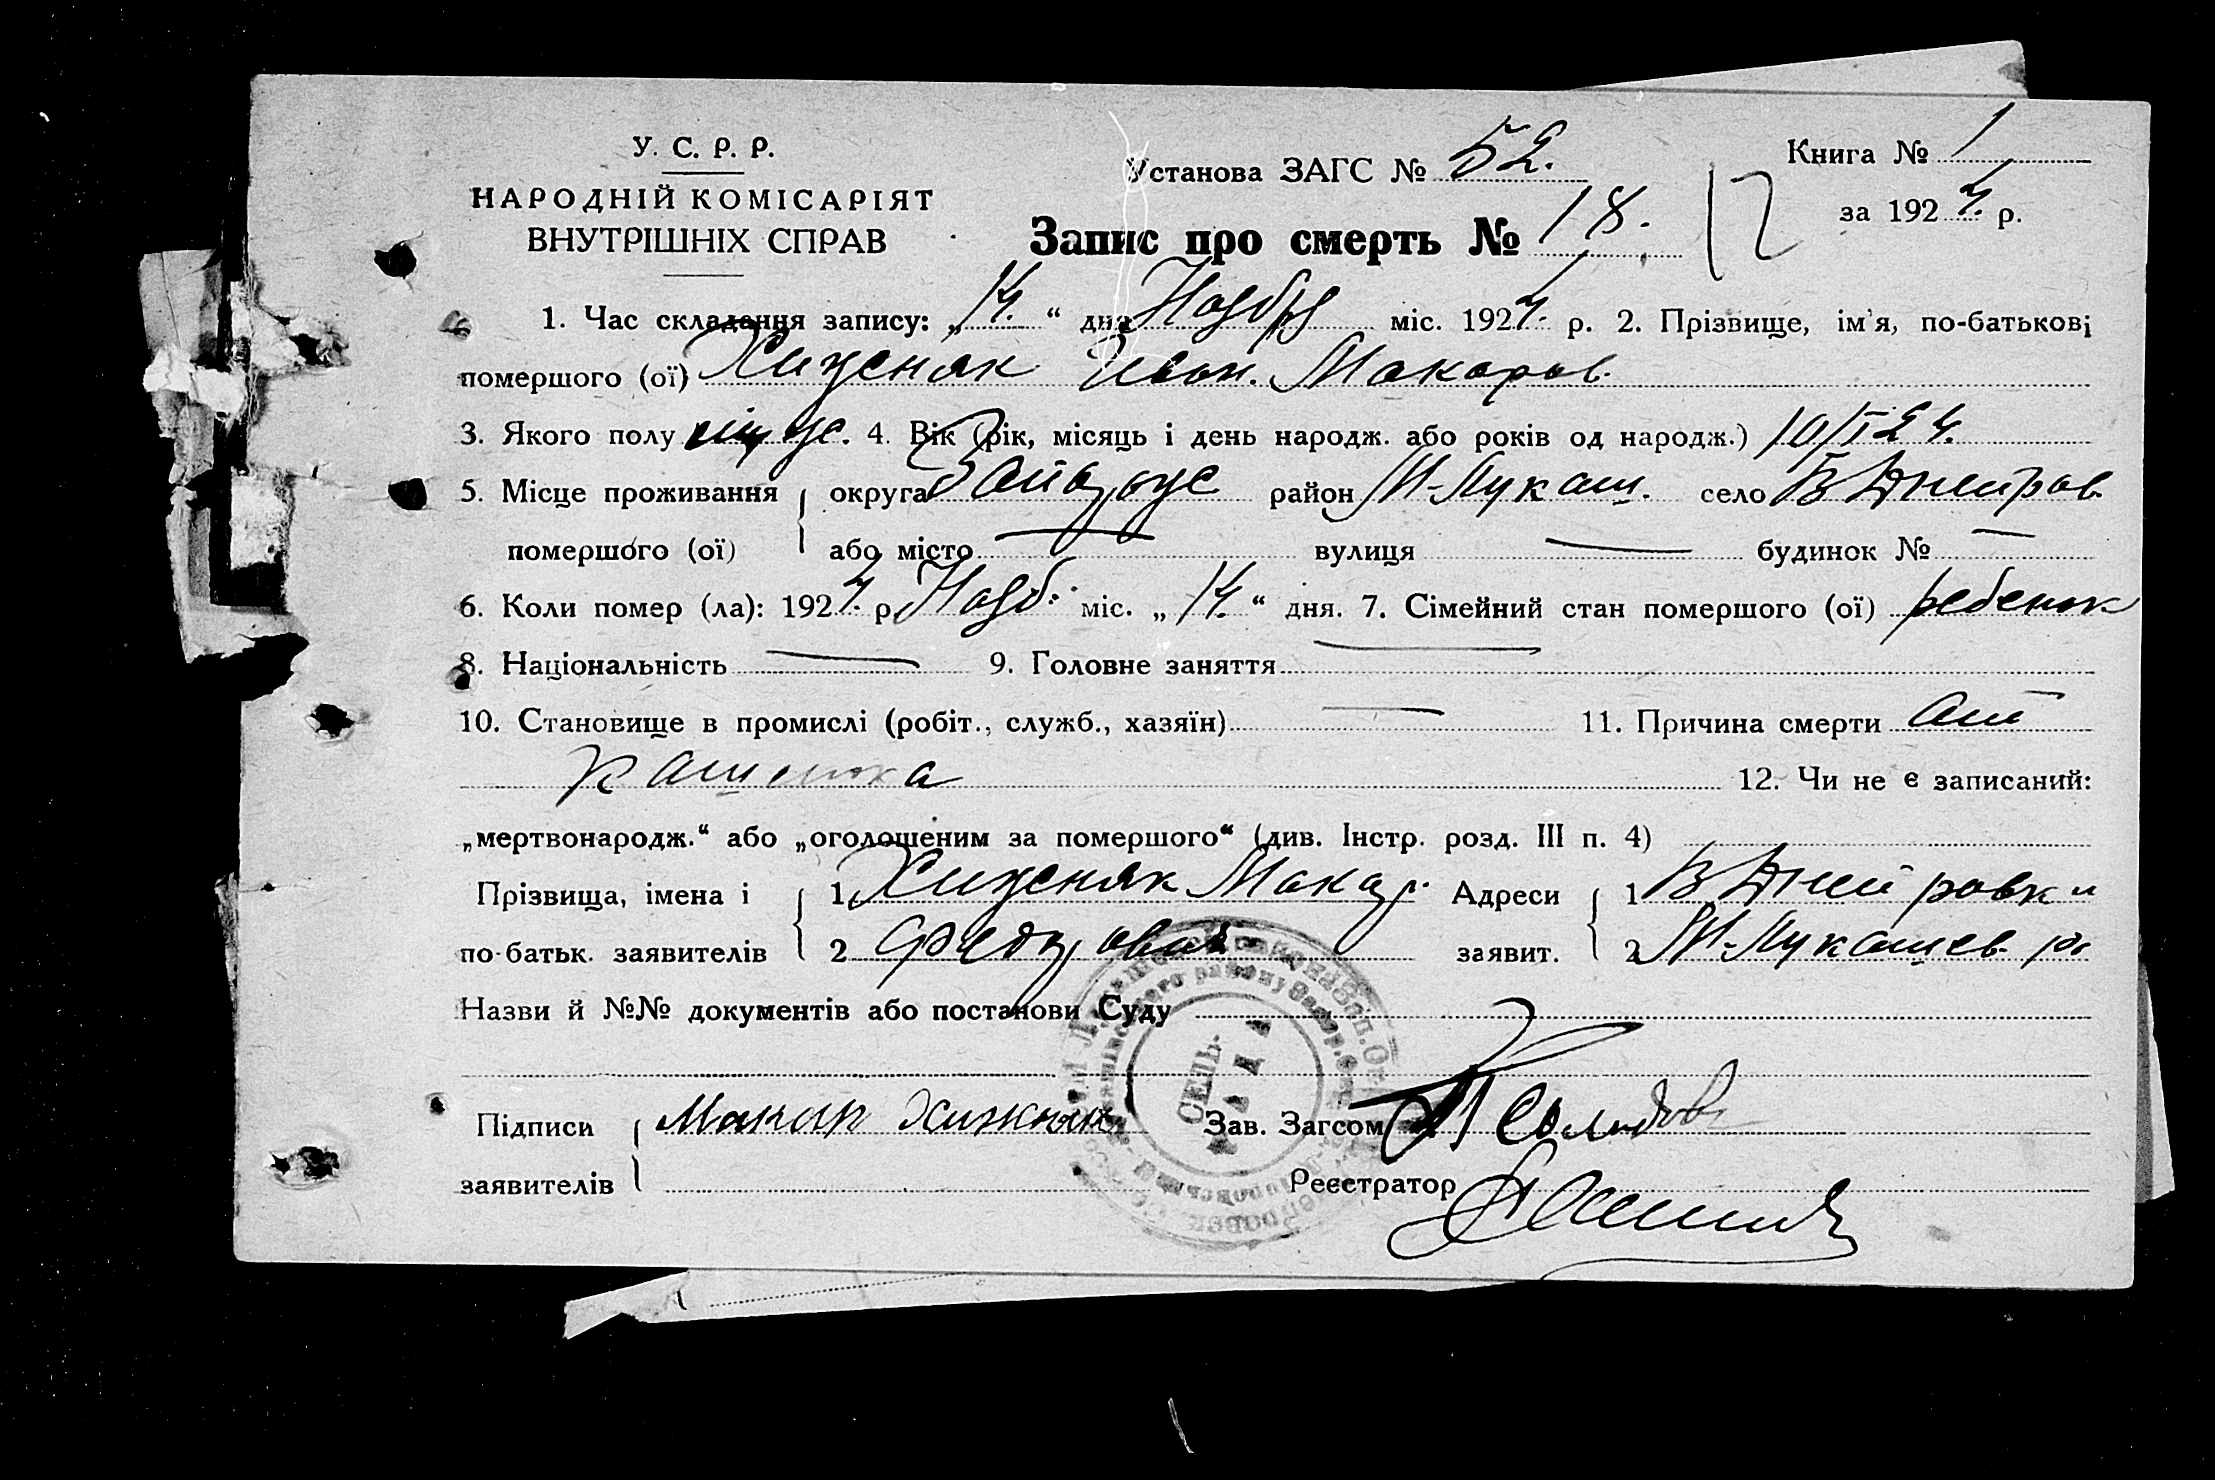 У. С. Р. Р.
НАРОДНІЙ КОМІСАРІЯТ
ВНУТРІШНІХ СПРАВ
Установа ЗАГС № 52.
Книга № 1
за 1924. р.
Запис про смерть № 18.
12
1. Час складання запису: „14.“ дня Ноября міс. 1924. р. 2. Прізвище, ім'я, по-батькові
помершого (ої) Хиженяк Иван. Макаров.
3. Якого полу муж. 4. Вік (рік, місяць і день народж. або років од народж.) 10/I 24.
5. Місце проживання округа Запорож район М-Лукаш. село В Днепров
помершого (ої) або місто — вулиця — будинок № —
6. Коли помер (ла): 1924. р. Нояб. міс. „14.“ дня. 7. Сімейний стан помершого (ої) ребенок
8. Національність — 9. Головне заняття —
10. Становище в промислі (робіт., служб., хазяїн) — 11. Причина смерти от
кашлюка 12. Чи не є записаний:
„мертвонародж.“ або „оголошеним за помершого“ (див. Інстр. розд. III п. 4)
Прізвища, імена і 1 Хиженяк Макар. Адреси 1 В Днепровки
по-батьк. заявителів 2 Федорович заявит. 2 М-Лукашев. р.
Назви й №№ документів або постанови Суду
Підписи Макар Хижняк Зав. Загсом
заявителів Реєстратор
СЕЛЬ-
РАДА